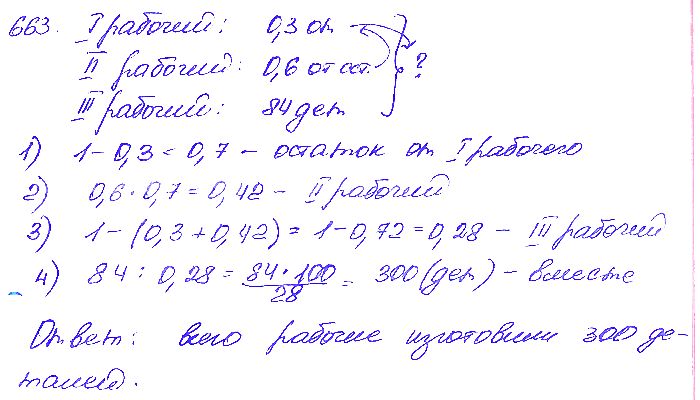 663. I рабочий: 0,3 от
II рабочий: 0,6 от ост. ?
III рабочий: 84 дет
1) 1 - 0,3 = 0,7 - остаток от I рабочего
2) 0,6 · 0,7 = 0,42 - II рабочий
3) 1 - (0,3 + 0,42) = 1 - 0,72 = 0,28 - III рабочий
4) 84 : 0,28 = 84 · 100 / 28 = 300 (дет) - вместе
Ответ: всего рабочие изготовили 300 де-
талей.